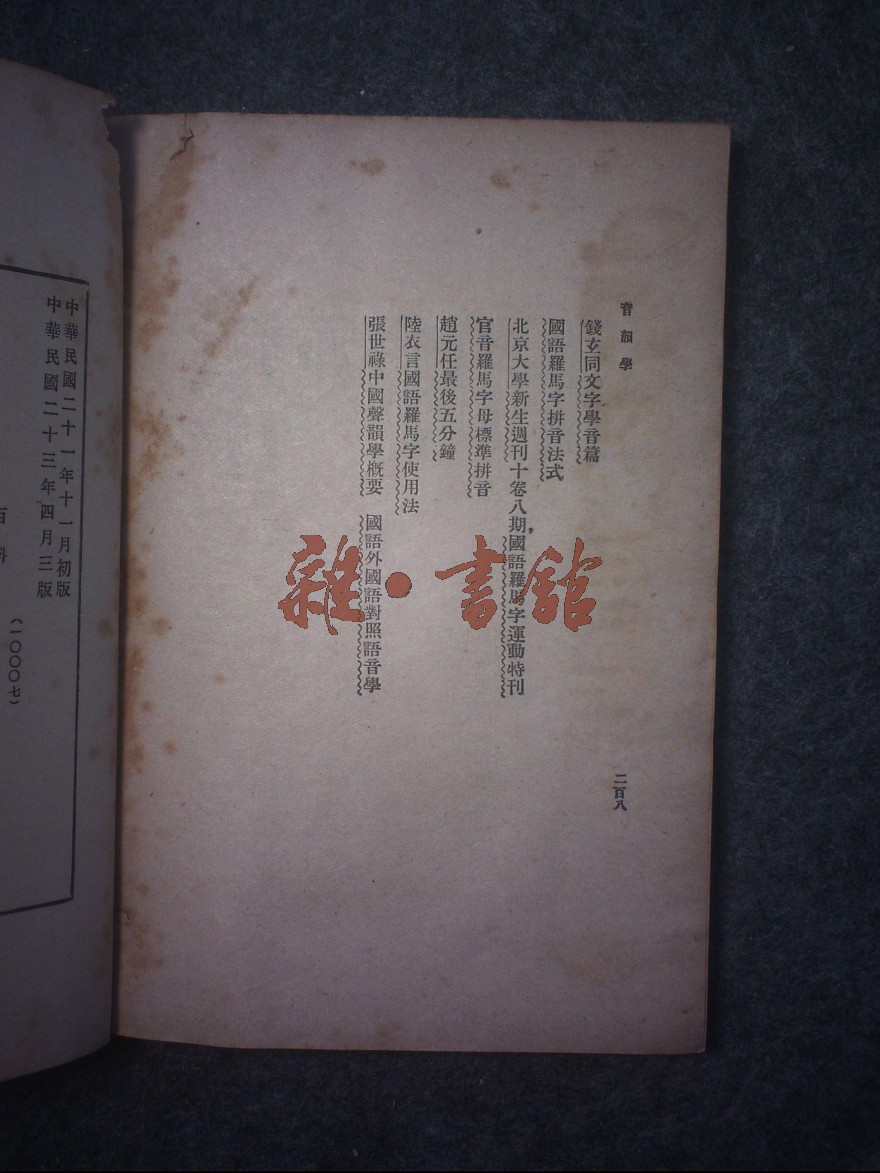 音韻學
錢玄同文字學音篇
國語羅馬字拼音法式
北京大學新生週刊十卷八期，國語羅馬字運動特刊
官音羅馬字母標準拼音
趙元任最後五分鐘
陸衣言國語羅馬字使用法
張世祿中國聲韻學概要　國語外國語對照語音學
二百八
雜·書館
中華民國二十一年十一月初版
中華民國二十三年四月三版
（一〇〇〇七）